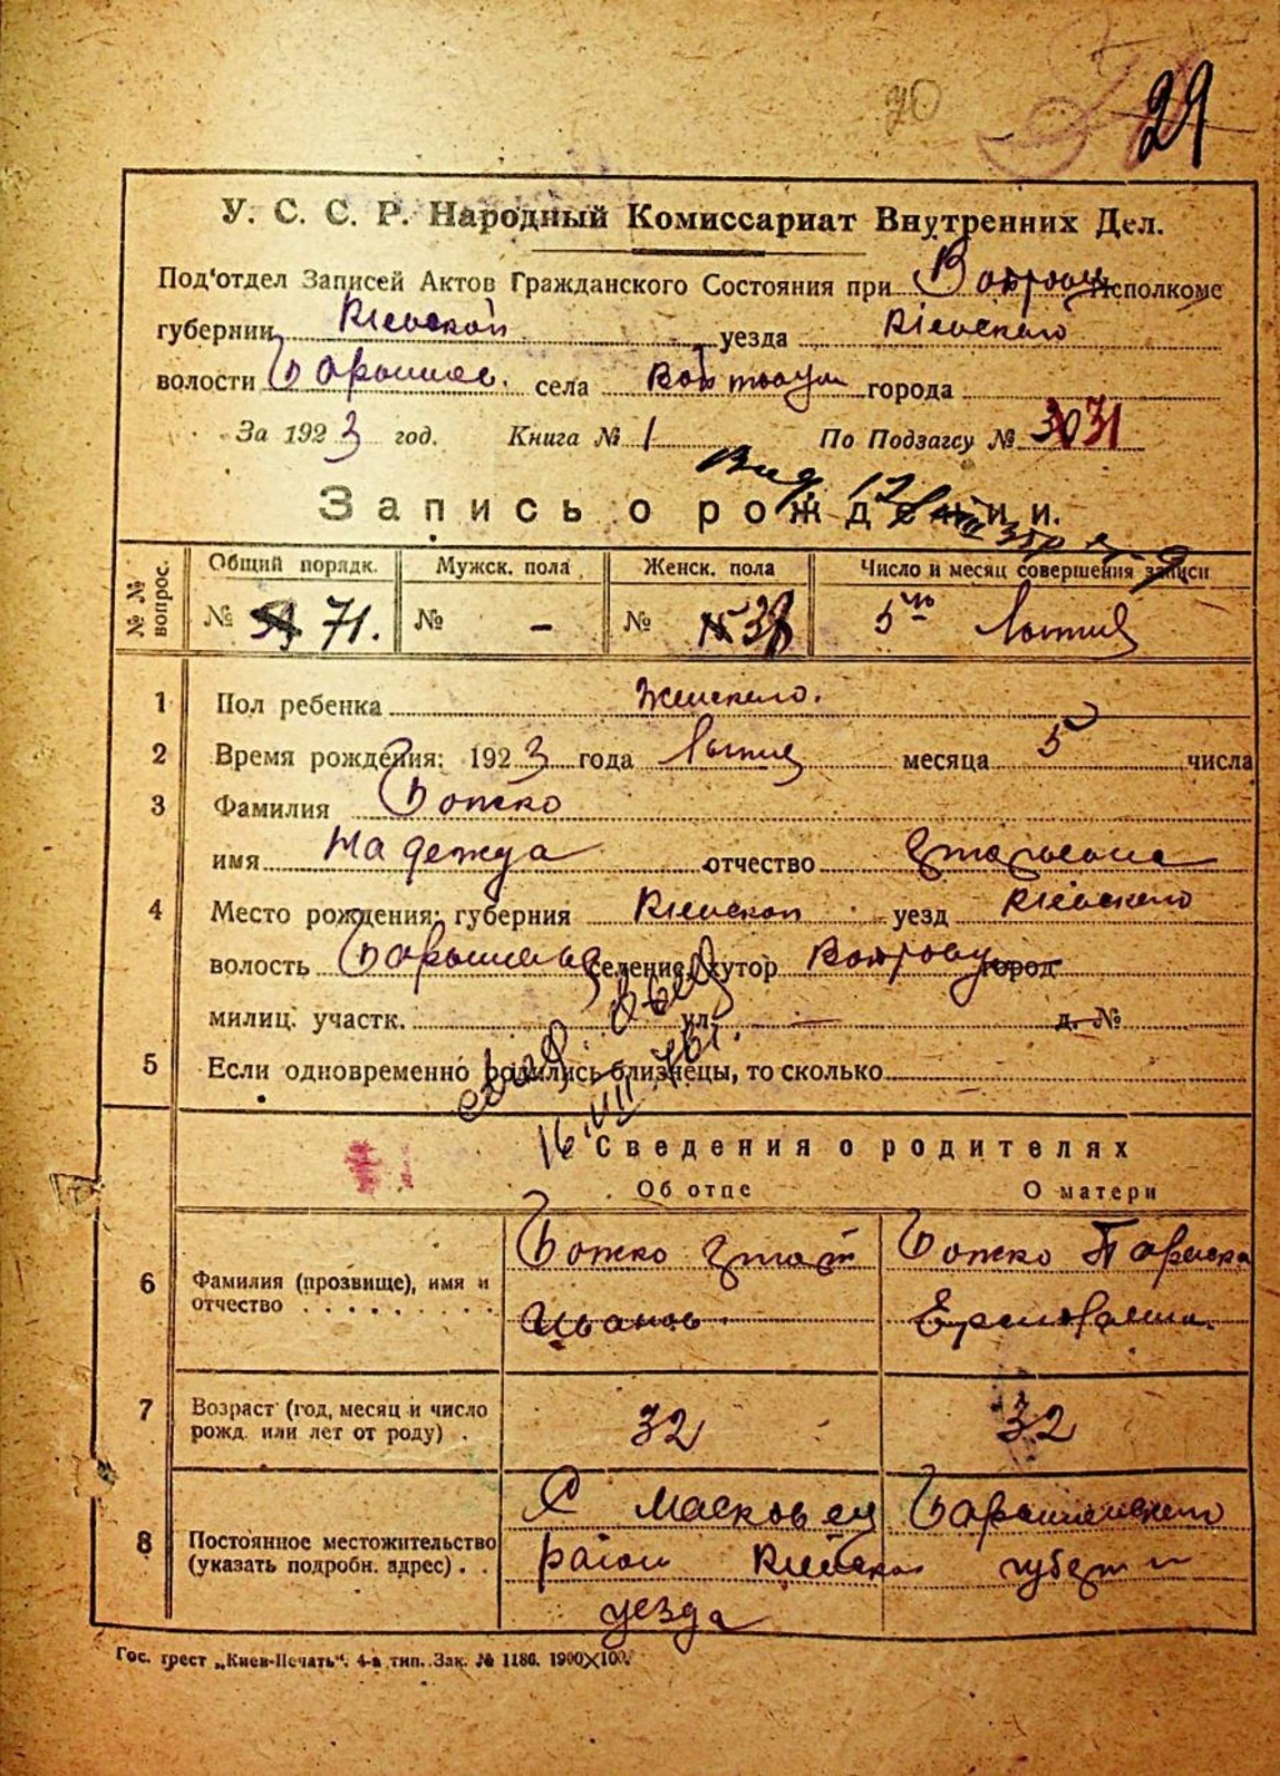 70
29
У. С. С. Р. Народный Комиссариат Внутренних Дел.
Под'отдел Записей Актов Гражданского Состояния при Исполкоме
губернии Кіевской уезда Кіевского
волости Барышев. села города
За 1923 год. Книга № 1 По Подзагсу № 31
Запись о рождении.
№№ вопрос. Общий порядк. Мужск. пола Женск. пола Число и месяц совершения записи
№ 71. № - № 38 5го
1 Пол ребенка Женского.
2 Время рождения: 1923 года месяца 5 числа
3 Фамилия Божко
имя Надежда отчество
4 Место рождения: губерния Кіевской уезд Кіевского
волость селение, хутор город
милиц. участк. ул. — д. №
5 Если одновременно родились близнецы, то сколько
16.VII 76г.
Сведения о родителях
Об отце О матери
6 Фамилия (прозвище), имя и отчество Божко Игнат Иванов. Божко Параска
7 Возраст (год, месяц и число рожд. или лет от роду). 32 32
8 Постоянное местожительство (указать подробн. адрес). . С Масковец Барышевского
район Киевской губерни
уезда
Гос. трест „Киев-Печать". 4-а тип. Зак. № 1186. 1900×100.